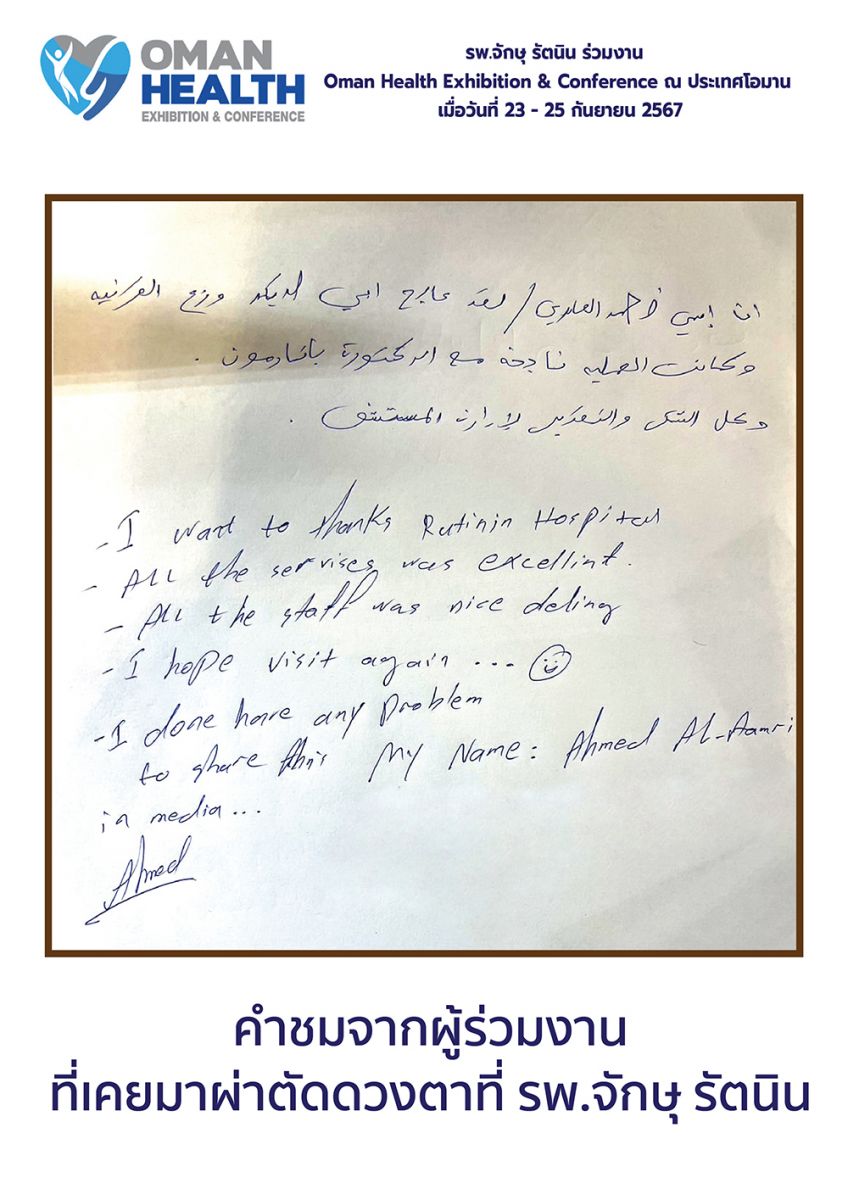 OMAN
HEALTH
EXHIBITION & CONFERENCE
รพ.จักษุ รัตนิน ร่วมงาน
Oman Health Exhibition & Conference ณ ประเทศโอมาน
เมื่อวันที่ 23 - 25 กันยายน 2567
انا إسمي أحمد العامري / لقد عالج ابي وزرع القرنيه
وكانت العمليه ناجحه مع الدكتورة .
وكل الشكر والتقدير لإدارة المستشفى .
- I want to thanks Rutinin Hospital
- ALL the servises was excellint.
- ALL the staff was nice deling
- I hope visit again ... ☺
- I done have any problem
to share this My Name: Ahmed AL-Aamri
in media...
Ahmed
คำชมจากผู้ร่วมงาน
ที่เคยมาผ่าตัดดวงตาที่ รพ.จักษุ รัตนิน